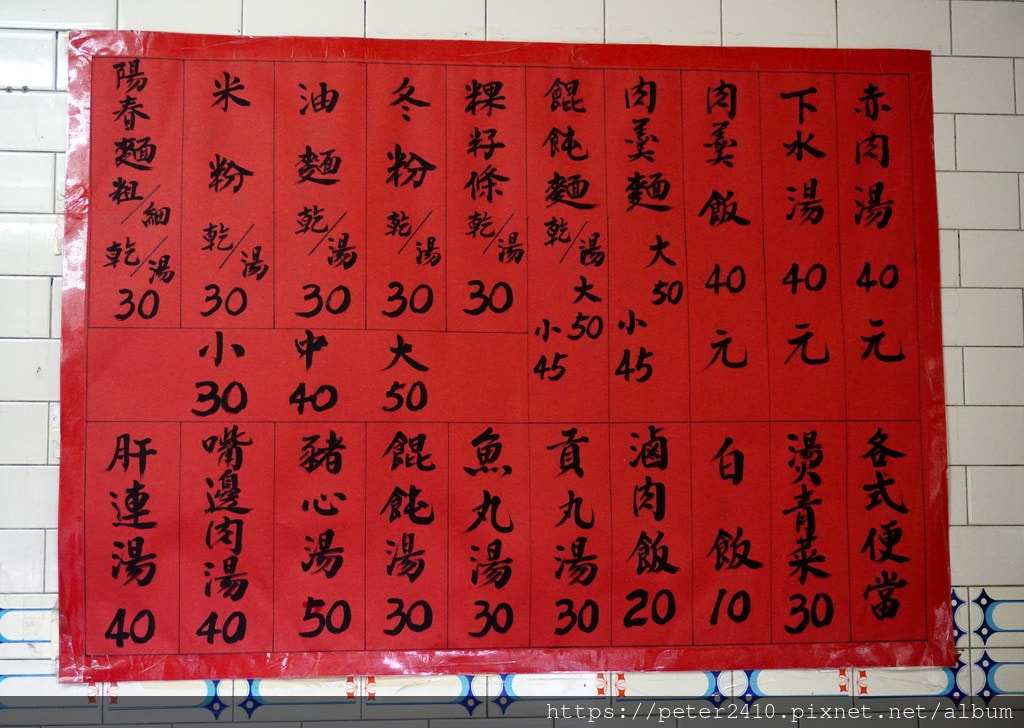 赤肉湯 40元
下水湯 40元
肉羹飯 40元
肉羹麵 大50 小45
餛飩麵 乾/湯 大50 小45
粿籽條 乾/湯 30
冬粉 乾/湯 30
油麵 乾/湯 30
米粉 乾/湯 30
陽春麵 粗/細 乾/湯 30
小30 中40 大50
各式便當
燙青菜 30
白飯 10
滷肉飯 20
貢丸湯 30
魚丸湯 30
餛飩湯 30
豬心湯 50
嘴邊肉湯 40
肝連湯 40
https://peter2410.pixnet.net/album